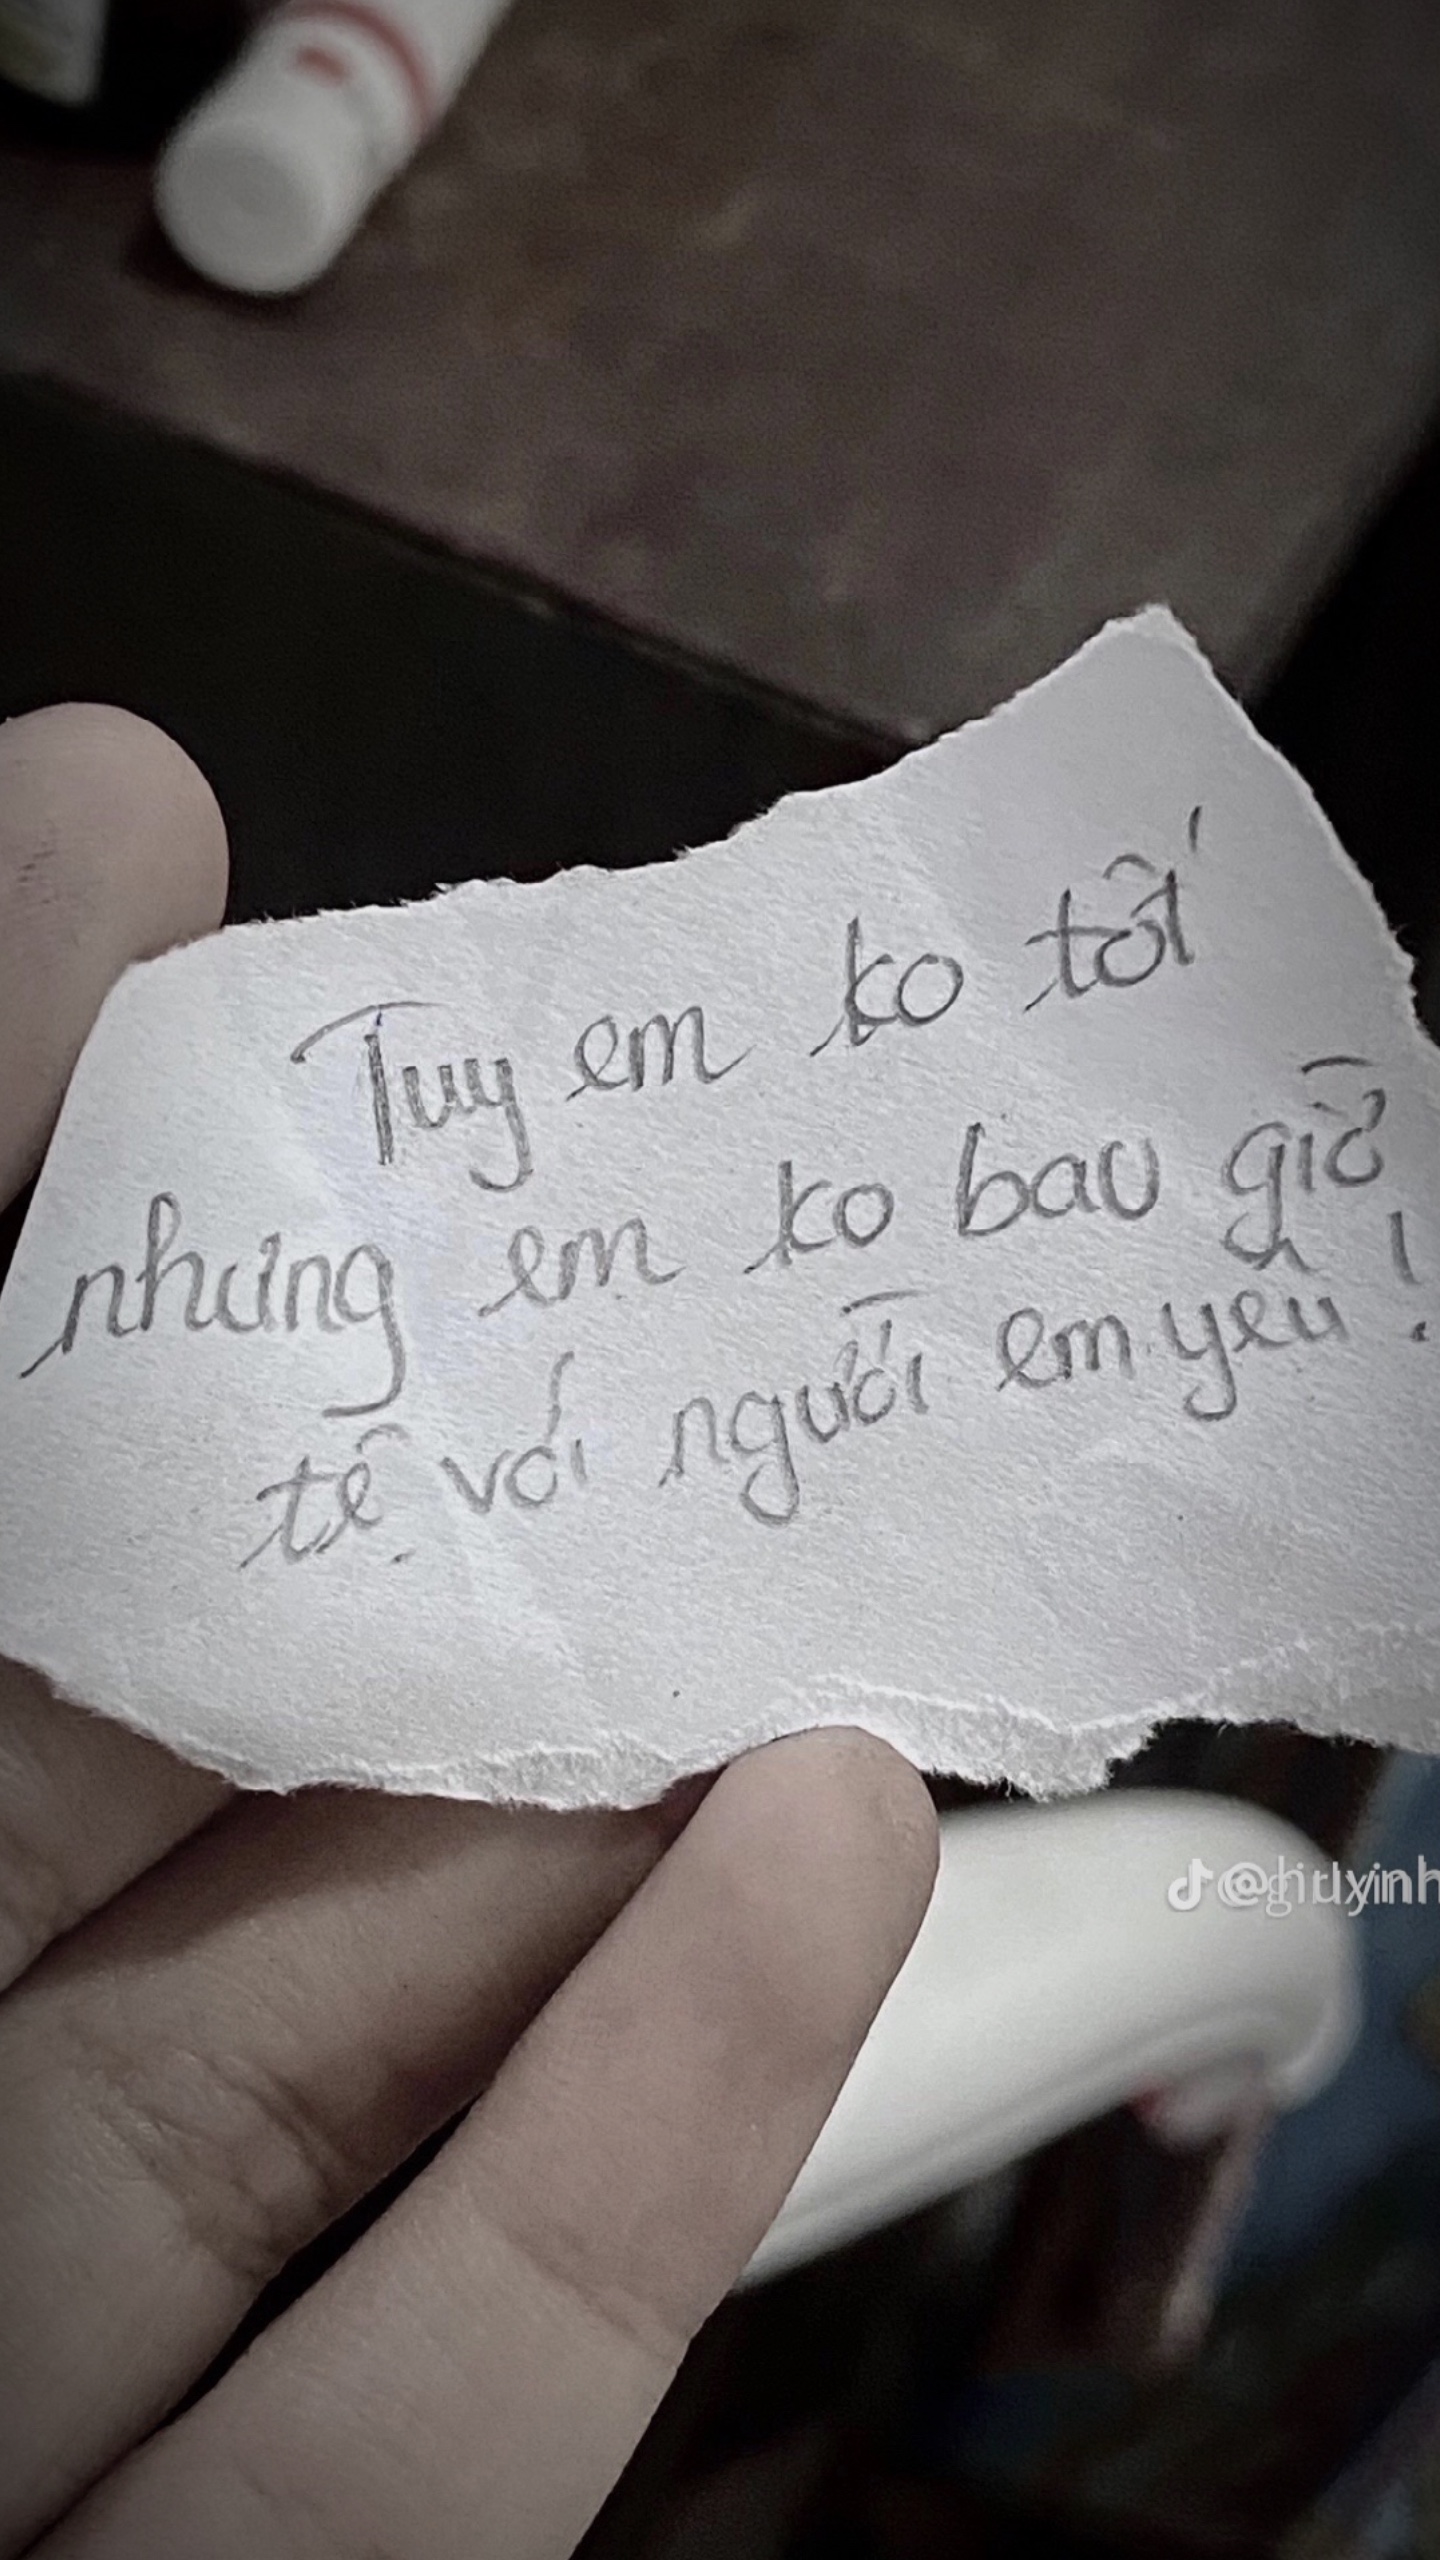 Tuy em ko tốt
nhưng em ko bao giờ
tệ với người em yêu!